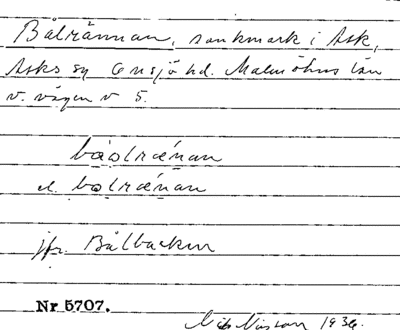 Bålrännan, sankmark i Ask,
Asks sn Onsjö hd. Malmöhus län
v. vägen v 5.
båolrænan
el. bolrænan
jfr. Bålbacken
Nr 5707.
Nils Nilsson 1936.